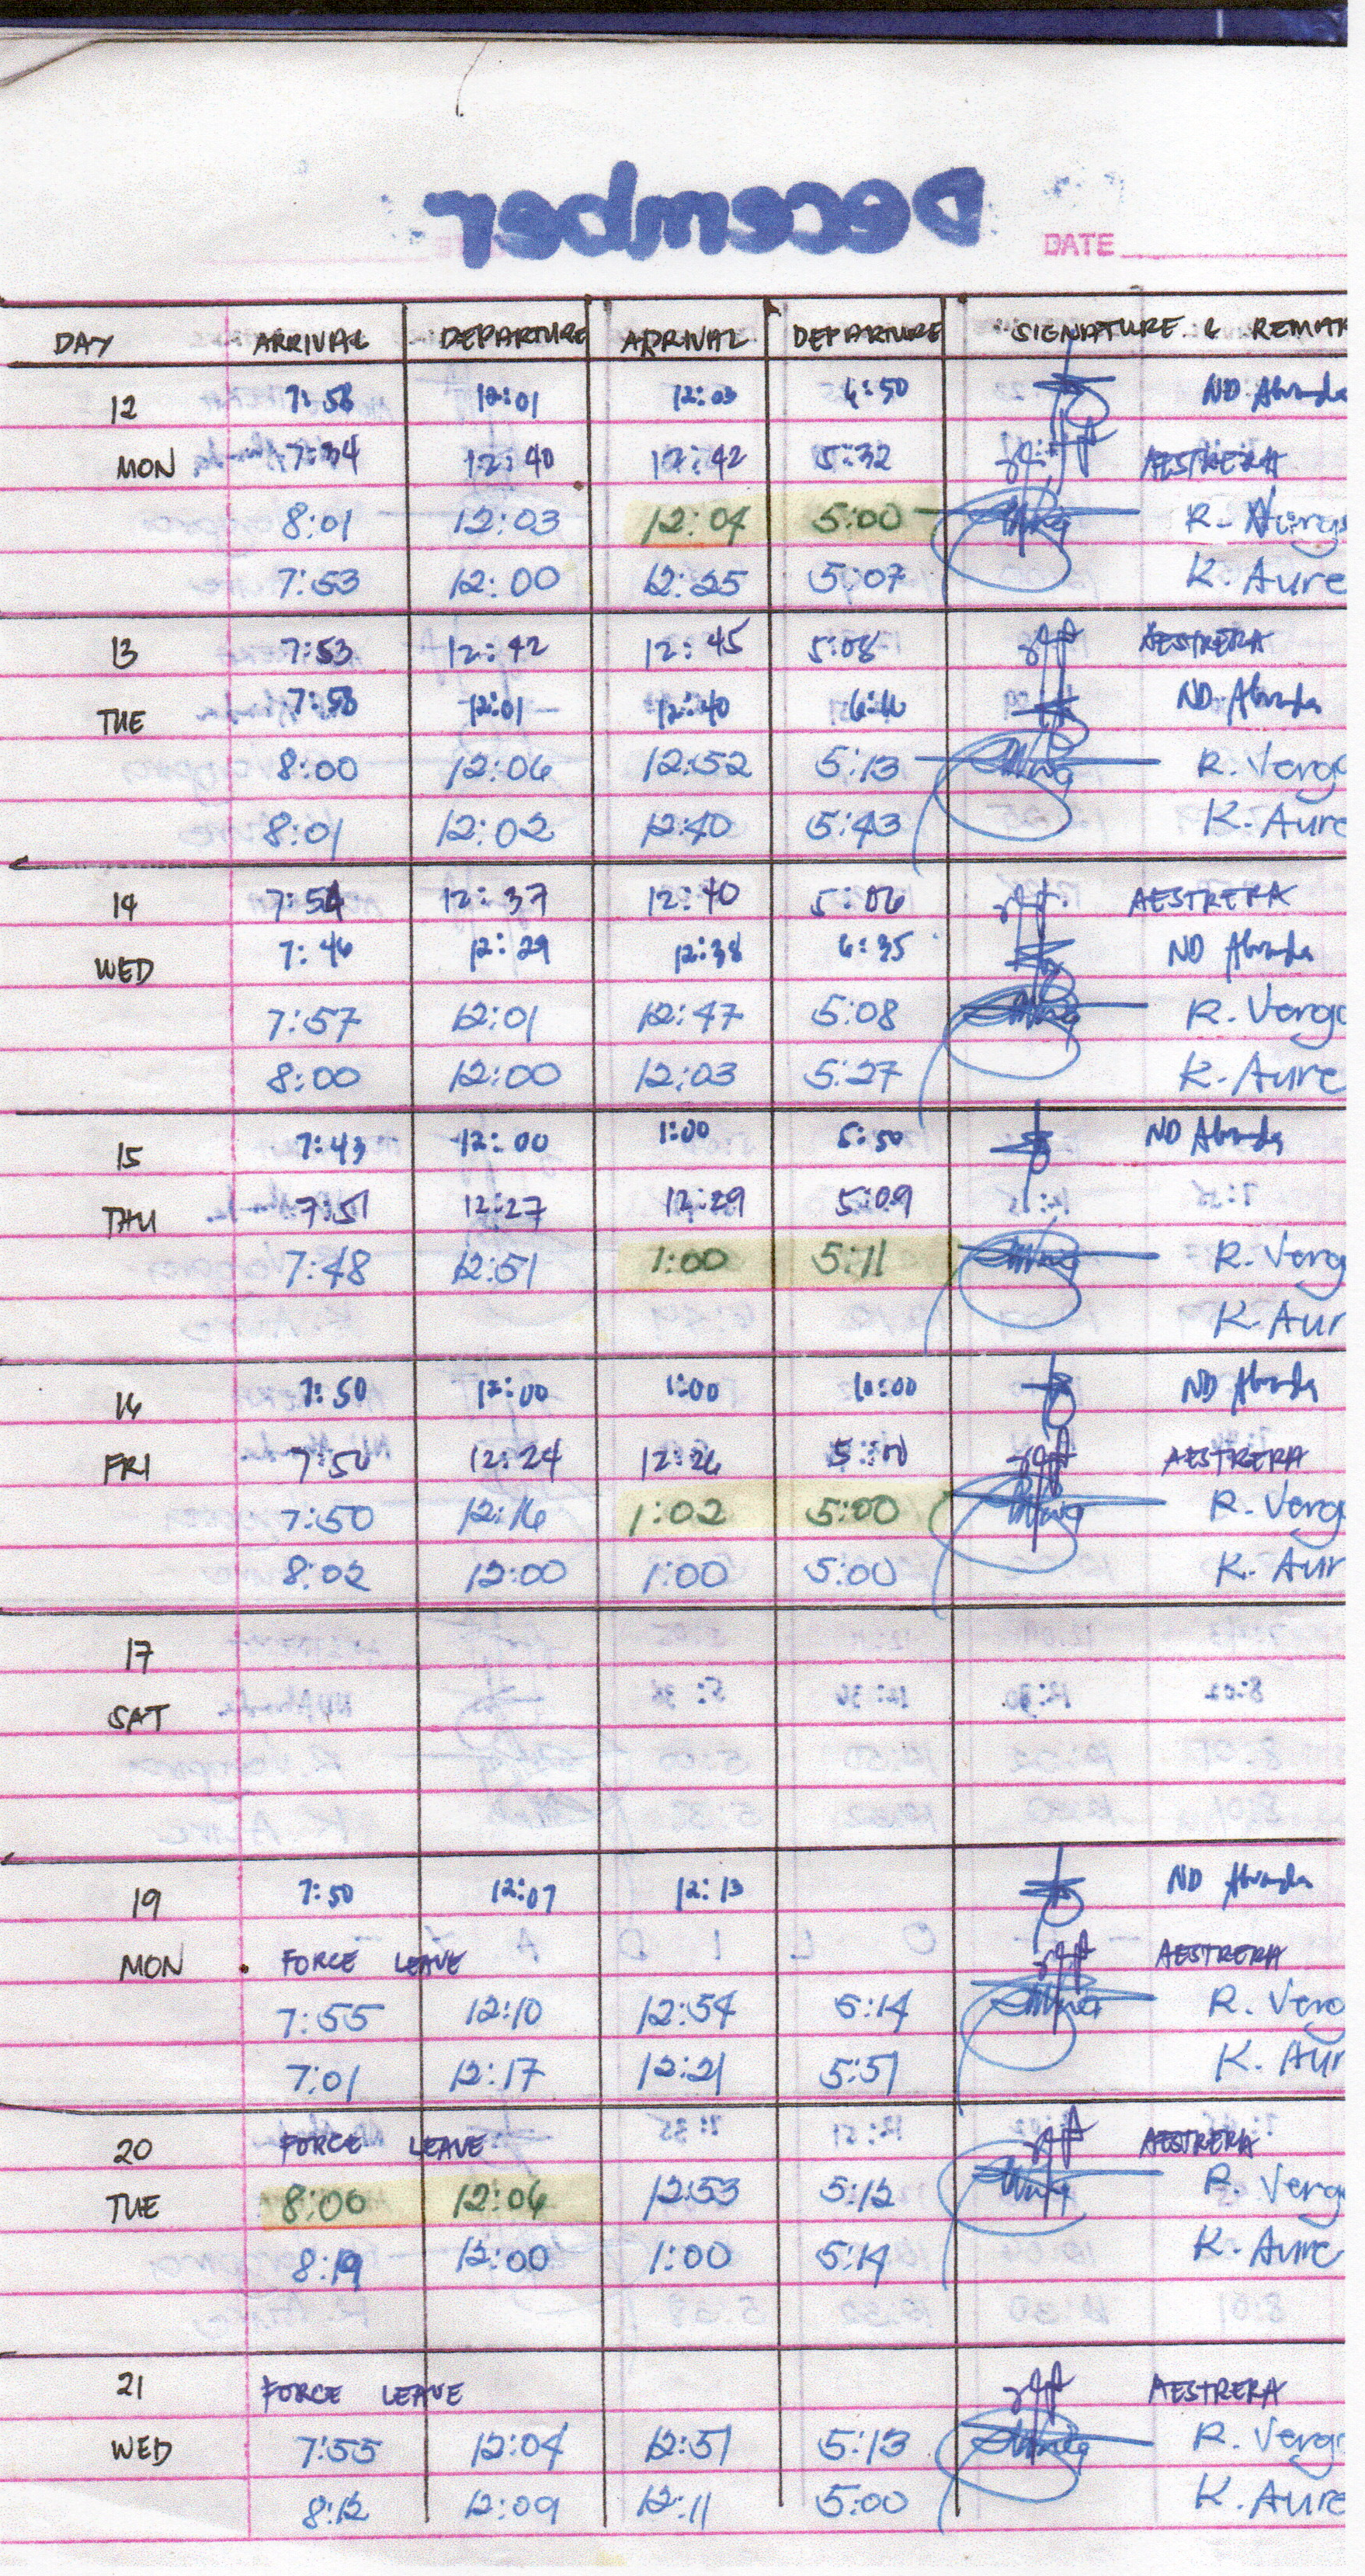 December
DATE
DAY ARRIVAL DEPARTURE ARRIVAL DEPARTURE SIGNATURE & REMAR
12 7:58 12:01 12:03 6:50 ND Abrada
MON 7:34 12:40 12:42 5:32 AESTRERA
8:01 12:03 12:04 5:00 R.
7:53 12:00 12:25 5:07 K. Aure
13 7:53 12:42 12:45 5:08 AESTRERA
TUE 7:58 12:01 12:40 ND Abrada
8:00 12:06 12:52 5:13 R. Verga
8:01 12:02 12:40 5:43 K. Aure
14 7:54 12:37 12:40 5:06 AESTRERA
WED 7:46 12:29 12:38 6:35 ND Abrada
7:57 12:01 12:47 5:08 R. Verga
8:00 12:00 12:03 5:27 K. Aure
15 7:43 12:00 1:00 5:50 ND Abrada
THU 7:51 12:27 12:29 5:09
7:48 12:51 1:00 5:11 R. Verg
K. Aur
16 7:50 12:00 1:00 10:00 ND Abrada
FRI 7:50 12:24 12:26 AESTRERA
7:50 12:16 1:02 5:00 R. Verg
8:02 12:00 1:00 5:00 K. Aur
17
SAT
19 7:50 12:07 12:13 ND Abrada
MON FORCE LEAVE AESTRERA
7:55 12:10 12:54 5:14 R. Verg
7:01 12:17 12:21 5:51 K. Aur
20 FORCE LEAVE AESTRERA
TUE 8:00 12:06 12:53 5:12 R. Verg
8:19 12:00 1:00 5:14 K. Aure
21 FORCE LEAVE AESTRERA
WED 7:55 12:04 12:51 5:13 R. Verg
8:12 12:09 12:11 5:00 K. Aure